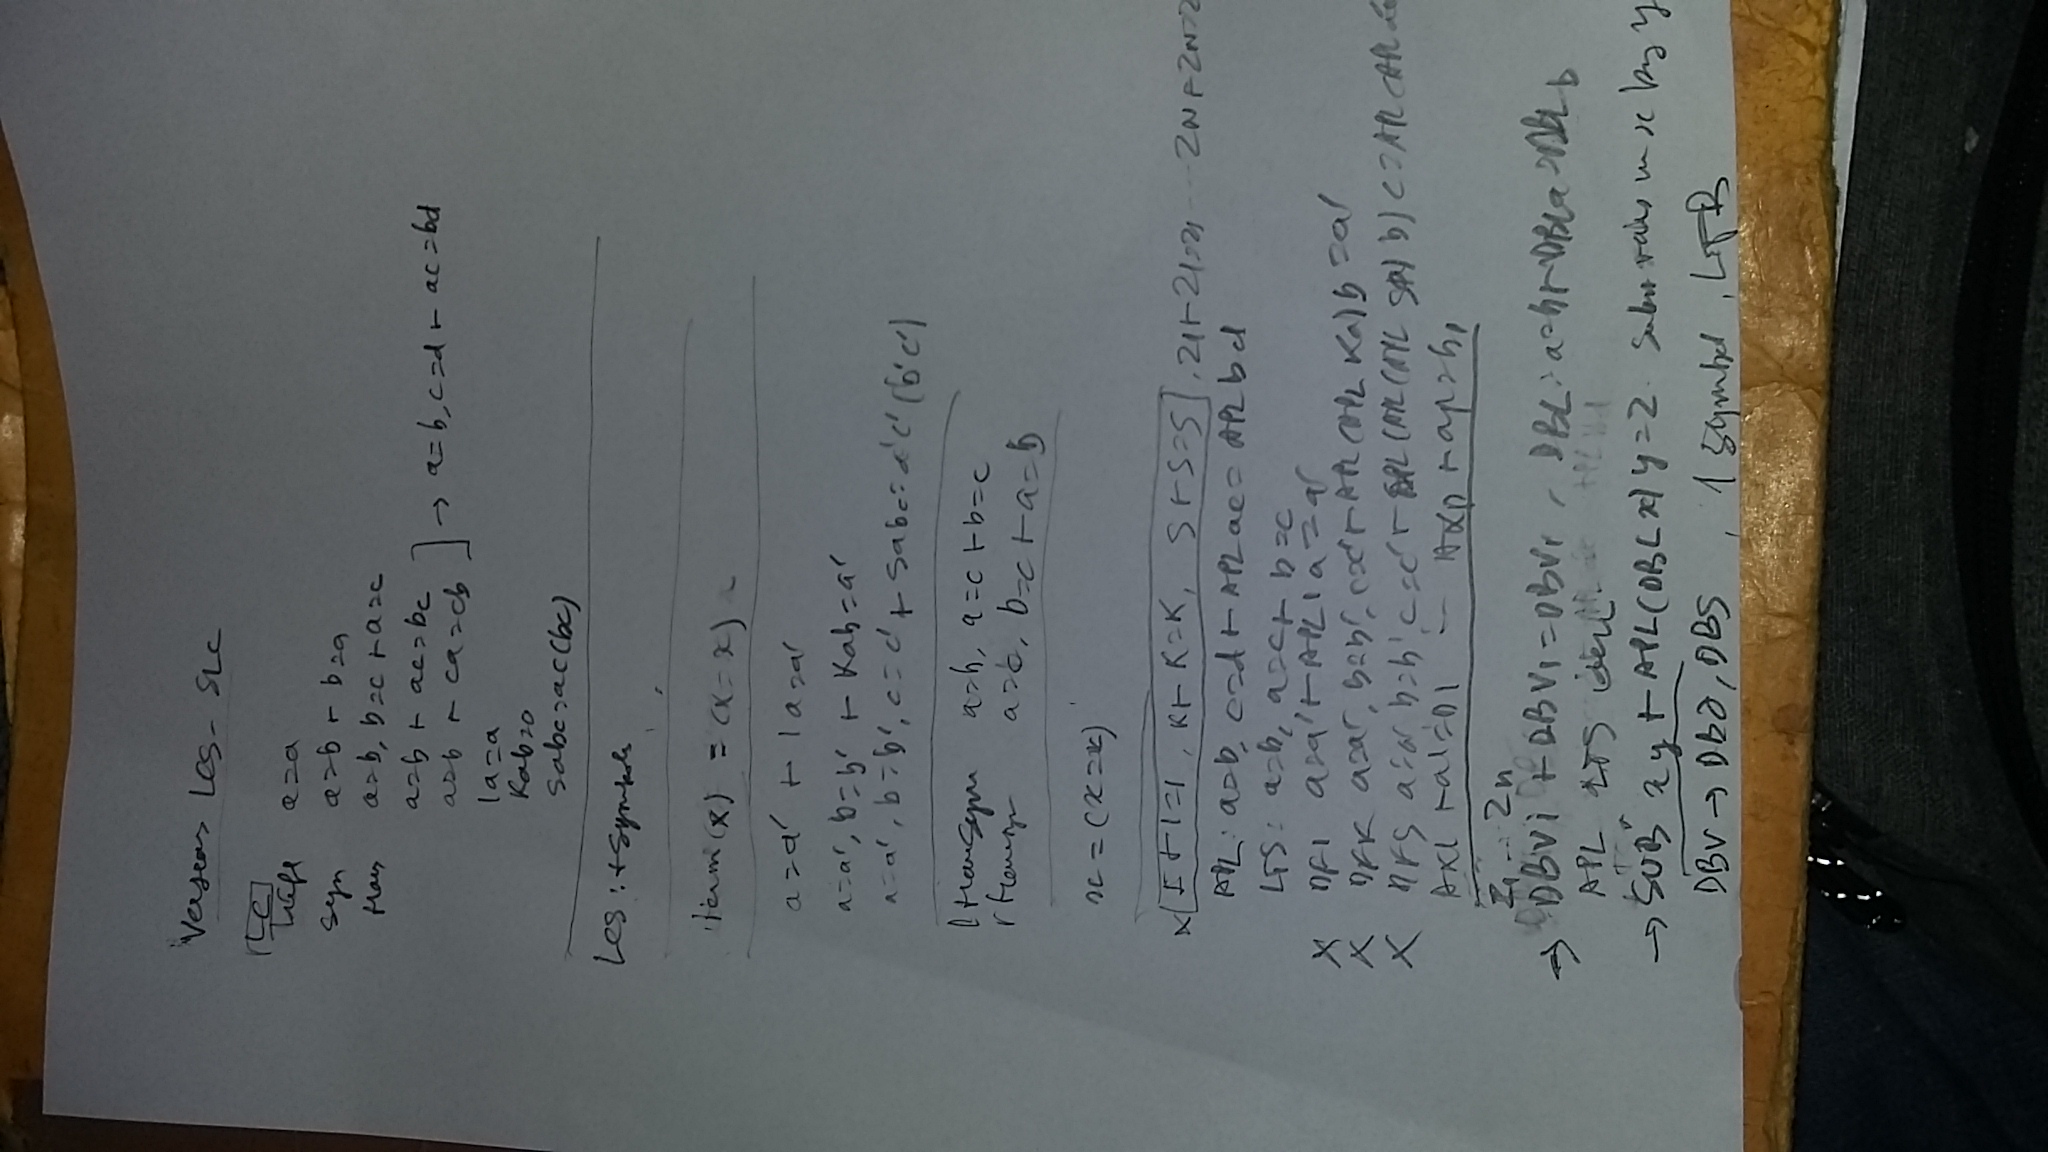 Versus LCS - SLC
LC
refl a=a
sym a=b ⊢ b=a
trans a=b, b=c ⊢ a=c
a=b ⊢ ac=bc
a=b ⊢ ca=cb ] → a=b, c=d ⊢ ac=bd
Ia=a
Kab=a
Sabc=ac(bc)
LCS : + symbols
term(x) = (x=x)
a=a' ⊢ Ia=a'
a=a', b=b' ⊢ Kab=a'
a=a', b=b', c=c' ⊢ Sabc=a'c'(b'c')
ltransym a=b, a=c ⊢ b=c
a=c, b=c ⊢ a=b
x = (x=x)
x I ⊢ I=I, K ⊢ K=K, S ⊢ S=S, Z1 ⊢ Z1=Z1 ... ZN ⊢ ZN=Z
APL: a=b, c=d ⊢ APL ac = APL bd
LTS: a=b, a=c ⊢ b=c
X DFI a=a' ⊢ APL I a = a'
X DFK a=a', b=b', c=c' ⊢ APL (APL Ka) b = a'
X DFS a=a' b=b' c=c' ⊢ APL (APL (APL Sa) b) c = APL (APL
AX1 ⊢ a1=b1 ... AXp ⊢ ap=bp
Z1 ... Zn
→ DBVi ⊢ DBVi=DBVi, DBL: a=b ⊢ DBLa=DBLb
APL LTS
→ SUB xy ⊢ APL(DBLx)y=z in x by y
DBV → DB0, DBS, 1 symbol,